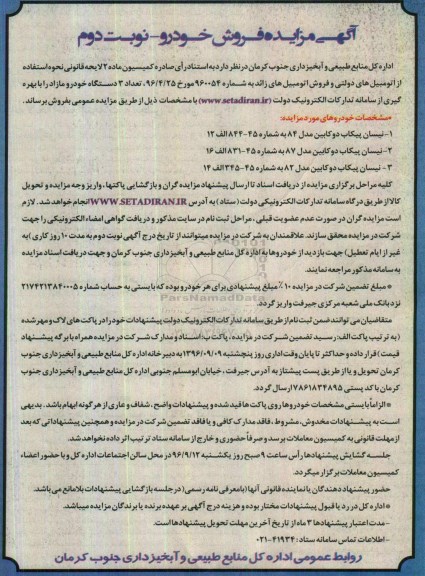 آگهی مزایده فروش خودرو - نوبت دوم
اداره کل منابع طبیعی و آبخیزداری جنوب کرمان در نظر دارد به استناد رأی صادره کمیسیون ماده ۲ لایحه قانونی نحوه استفاده
از اتومبیل های دولتی و فروش اتومبیل های زائد به شماره ۹۶۰۰۵۴ مورخ ۹۶/۴/۲۵، تعداد ۳ دستگاه خودرو مازاد را با بهره
گیری از سامانه تدارکات الکترونیک دولت (www.setadiran.ir) با مشخصات ذیل از طریق مزایده عمومی بفروش برساند.
*مشخصات خودروهای مورد مزایده:
۱- نیسان پیکاب دو کابین مدل ۸۴ به شماره ۴۵-۸۴۴ الف ۱۲
۲- نیسان پیکاب دو کابین مدل ۸۷ به شماره ۴۵-۸۳۱ الف ۱۶
۳- نیسان پیکاب دو کابین مدل ۸۲ به شماره ۴۵-۳۴۵ الف ۱۴
کلیه مراحل برگزاری مزایده از دریافت اسناد تا ارسال پیشنهاد مزایده گران و بازگشایی پاکتها، واریز وجه مزایده و تحویل
کالا از طریق درگاه سامانه تدارکات الکترونیکی دولت (ستاد) به آدرس WWW.SETADIRAN.IR انجام خواهد شد. لازم
است مزایده گران در صورت عدم عضویت قبلی، مراحل ثبت نام در سایت مذکور و دریافت گواهی امضاء الکترونیکی را جهت
شرکت در مزایده محقق سازند. علاقمندان به شرکت در مزایده میتوانند از تاریخ درج آگهی نوبت دوم به مدت ۱۰ روز کاری (به
غیر از ایام تعطیل) جهت بازدید از خودروها به اداره کل منابع طبیعی و آبخیزداری جنوب کرمان و جهت دریافت اسناد مزایده
به سامانه مذکور مراجعه نمایند.
* مبلغ تضمین شرکت در مزایده ۱۰٪ مبلغ پیشنهادی برای هر خودرو بوده که بایستی به حساب شماره ۲۱۷۴۲۱۳۸۴۰۰۵
نزد بانک ملی شعبه مرکزی جیرفت واریز گردد.
متقاضیان می توانند ضمن ثبت نام از طریق سامانه تدارکات الکترونیک دولت پیشنهادات خود را در پاکت های لاک و مهر شده
(به ترتیب پاکت الف: رسید تضمین شرکت در مزایده، پاکت ب: اسناد و مدارک شرکت در مزایده همراه با برگه پیشنهاد
قیمت) قرار داده و حداکثر تا پایان وقت اداری روز پنجشنبه ۱۳۹۶/۰۹/۰۹ به دبیرخانه اداره کل منابع طبیعی و آبخیزداری جنوب
کرمان تحویل و یا از طریق پست پیشتاز به آدرس جیرفت، خیابان ابومسلم جنوبی اداره کل منابع طبیعی و آبخیزداری جنوب
کرمان با کد پستی ۷۸۶۱۸۳۴۸۹۵ ارسال گردد.
* الزاماً بایستی مشخصات خودروها روی پاکت ها قید شده و پیشنهادات واضح، شفاف و عاری از هرگونه ابهام باشد. بدیهی
است به پیشنهادات مخدوش، مشروط، فاقد مدارک کافی و یا فاقد تضمین شرکت در مزایده و همچنین پیشنهاداتی که بعد
از مهلت قانونی به کمیسیون معاملات برسد و صرفاً حضوری و خارج از سامانه ستاد ترتیب اثر داده نخواهد شد.
جلسه گشایش پیشنهادها رأس ساعت ۹ صبح روز یکشنبه ۹۶/۹/۱۲ در محل سالن اجتماعات اداره کل و با حضور اعضاء
کمیسیون معاملات برگزار میگردد.
حضور پیشنهاد دهندگان یا نماینده قانونی آنها (با معرفی نامه رسمی) در جلسه بازگشایی پیشنهادات بلامانع می باشد.
* اداره کل در رد یا قبول پیشنهادات مختار بوده و هزینه درج آگهی بر عهده برنده یا برندگان مزایده میباشد.
- مدت اعتبار پیشنهادها ۳ ماه از تاریخ آخرین مهلت تحویل پیشنهادها است.
- اطلاعات تماس سامانه ستاد: ۴۱۹۳۴-۰۲۱
روابط عمومی اداره کل منابع طبیعی و آبخیزداری جنوب کرمان
ParsNamadData